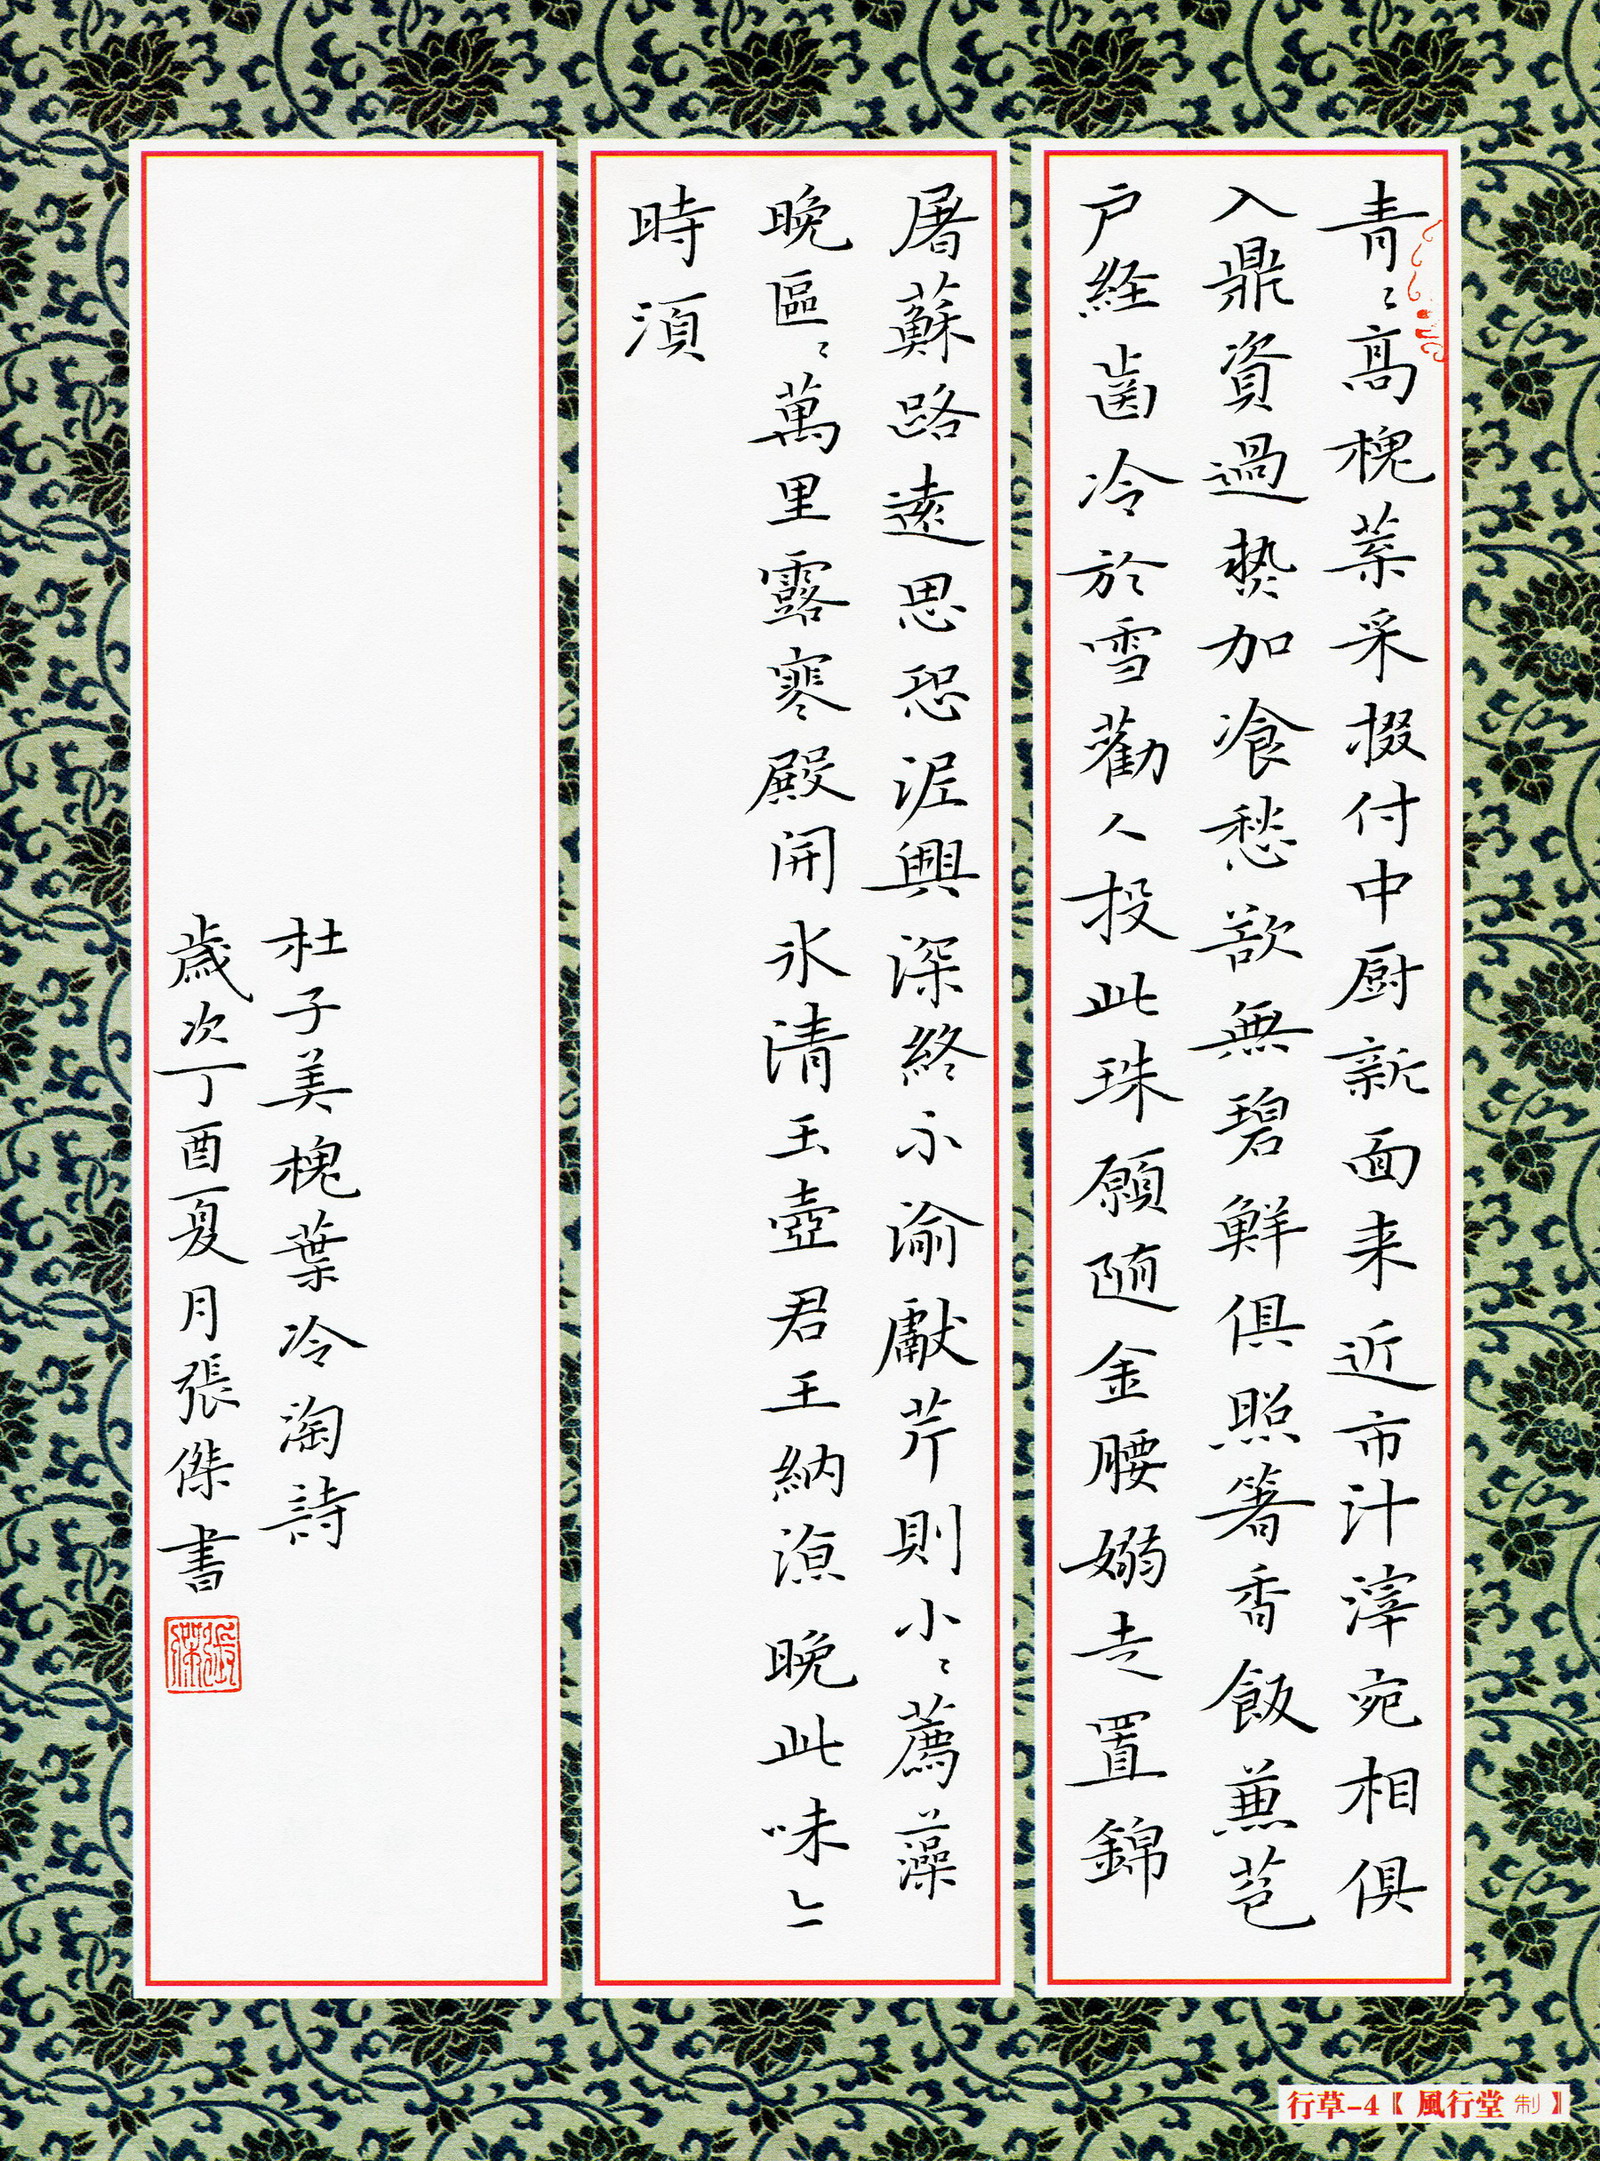 青〻高槐葉采掇付中厨新面来近市汁滓宛相俱
入鼎資過熱加飡愁欲無碧鮮俱照箸香飯蒹苞
户经齒冷於雪勸人投此珠願随金騕嫋走置錦
屠蘇路遠思恐泥興深終不渝獻芹則小〻薦藻
晚區〻萬里露寒殿開冰清玉壺君王納凉晚此味亦
時須
杜子美槐葉冷淘詩
歲次丁酉夏月張傑書
張傑
行草-4〖風行堂 制〗